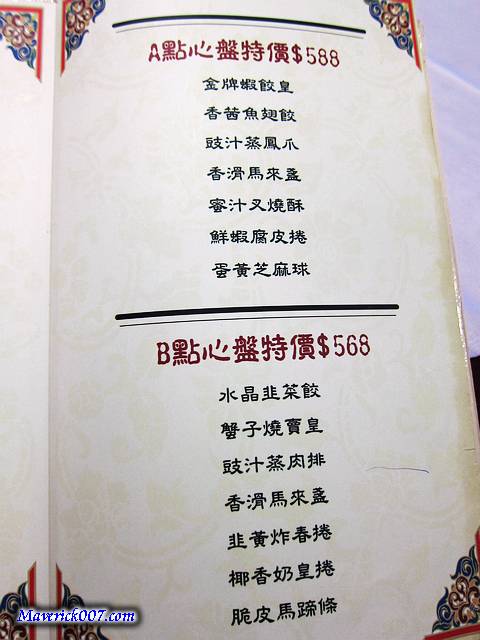 A點心盤特價$588
金牌蝦餃皇
香茜魚翅餃
豉汁蒸鳳爪
香滑馬來盞
蜜汁叉燒酥
鮮蝦腐皮捲
蛋黃芝麻球
B點心盤特價$568
水晶韭菜餃
蟹子燒賣皇
豉汁蒸肉排
香滑馬來盞
韭黃炸春捲
椰香奶皇捲
脆皮馬蹄條
Maverick007.com